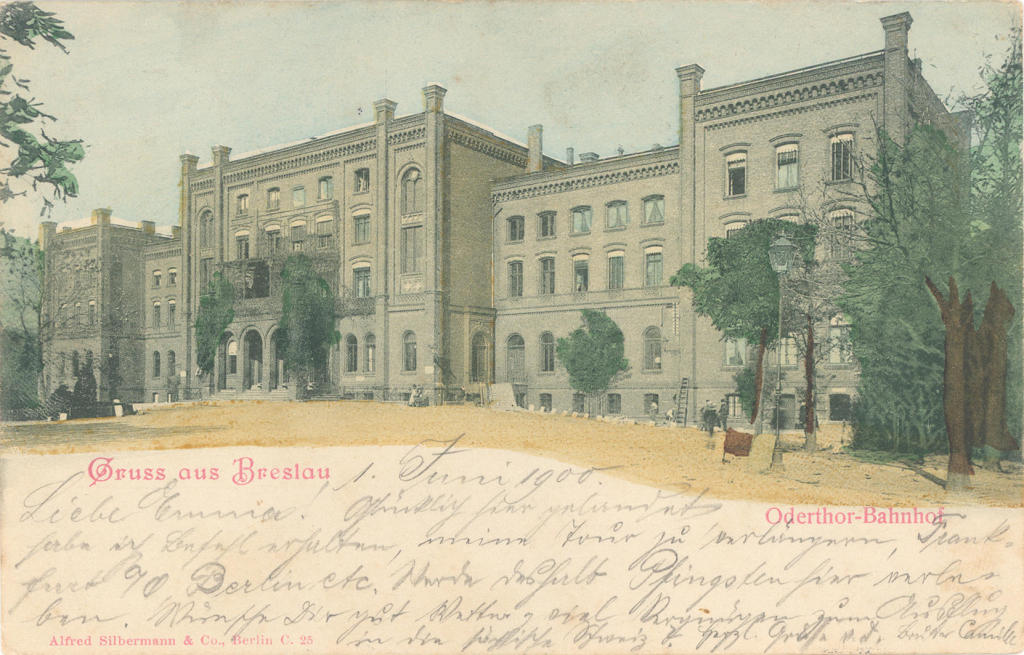 Gruss aus Breslau
1. Juni 1900.
Liebe Emma! Glücklich hier gelandet
habe ich Befehl erhalten, meine Tour zu verlängern, Frank-
furt %O Berlin etc. Werde deshalb Pfingsten hier verle-
ben. Wünsche Dir gut Wetter & viel Vergnügen zum Ausflug
in die sächsische Schweiz & herzl. Grüße v. d. Bruder Camill
Oderthor-Bahnhof
Alfred Silbermann & Co., Berlin C. 25